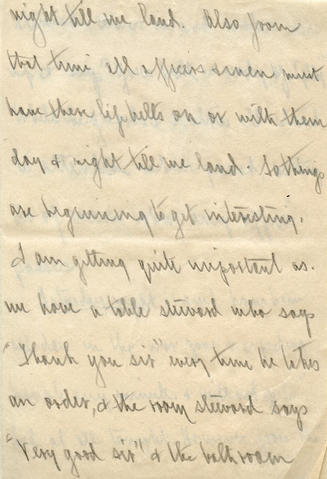 night till we land. Also from
that time all officers & men must
have there life belts on or with them
day & night till we land. So things
are beginning to get interesting.
I am getting quite important as.
we have a table steward who says
"Thank you sir every time he takes
an order, & the room steward says
"Very good sir" & the bath room